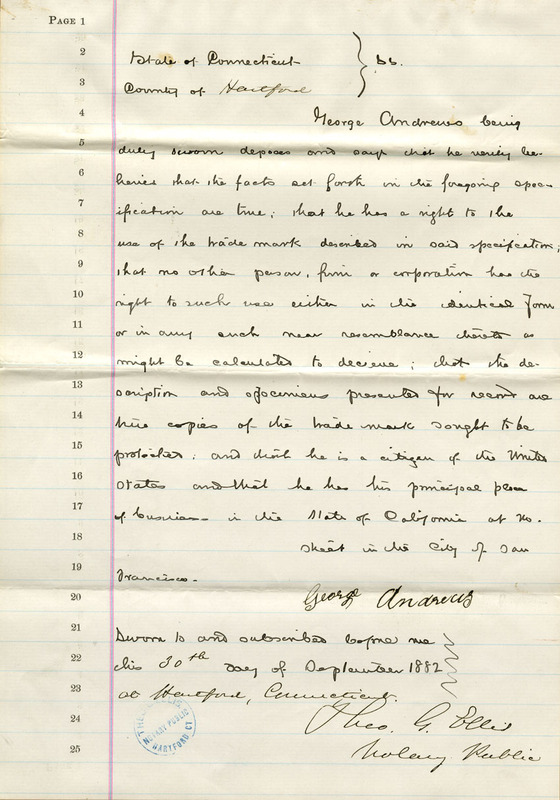 PAGE 1
2 State of Connecticut } ss.
3 County of Hartford
4 George Andrews being
5 duly sworn deposes and says that he verily be-
6 lieves that the facts set forth in the foregoing spec-
7 ification are true; that he has a right to the
8 use of the trade mark described in said specification;
9 that no other person, firm or corporation has the
10 right to such use either in the identical form
11 or in any such near resemblance thereto as
12 might be calculated to deceive; that the de-
13 scription and specimens presented for record are
14 true copies of the trade mark sought to be
15 protected; and that he is a citizen of the United
16 States and that he has his principal place
17 of business in the State of California at No.
18 Street in the City of San
19 Francisco.
20 George Andrews
21 Sworn to and subscribed before me
22 this 30th day of September 1882
23 at Hartford, Connecticut.
24 Theo. G. Ellis
25 Notary Public
NOTARY PUBLIC
HARTFORD CT